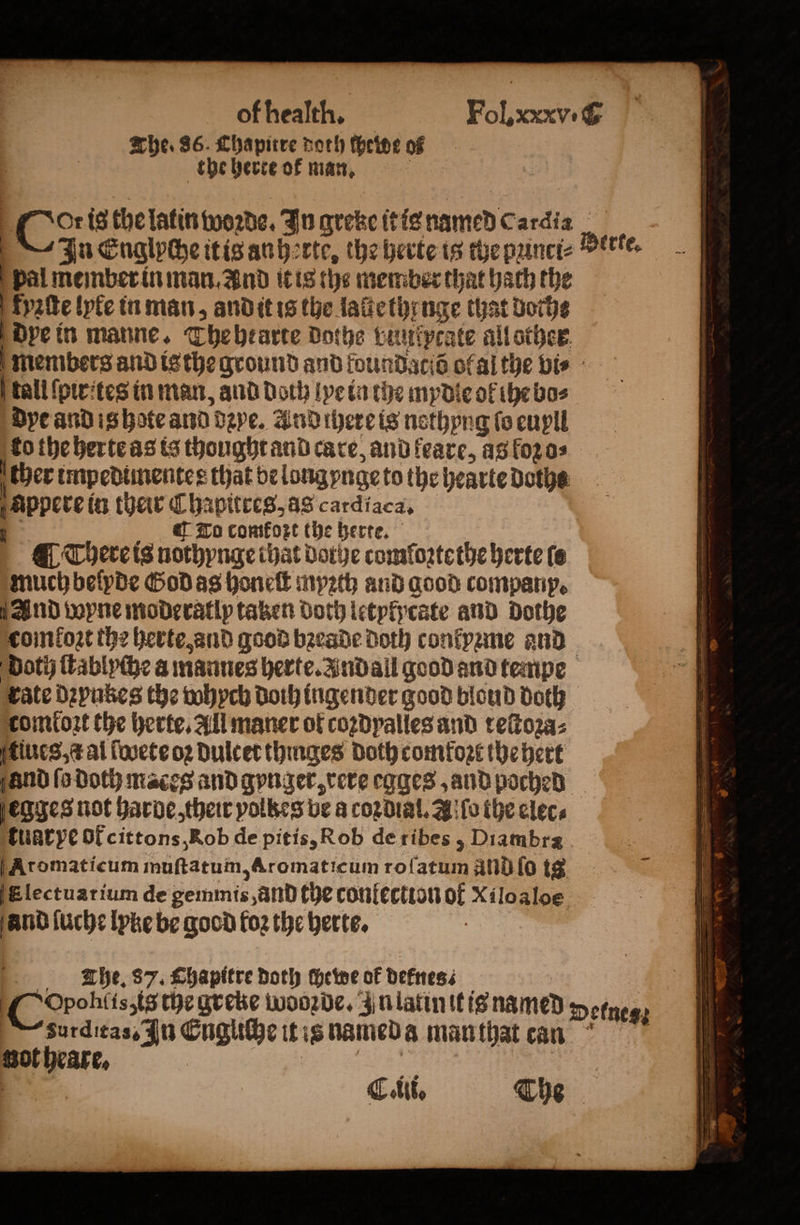 of health. Fol.xxxv. C
The. 86. Chapitre doth shewe of
the herte of man.
COr is the latin worde. In greke it is named Cardia
In Englyshe it is an herte, the herte is the princi= Herte.
pal member in man. And it is the member that hath the
fyrste lyfe in man, and it is the laste thynge that dothe
dye in manne. The hearte dothe viuifycate all other
members and is the ground and foundaciō of al the vi=
tall spirites in man, and doth lye in the mydle of the bo=
dye and is hote and drye. And there is nothyng so euyll
to the herte as is thought and care, and feare, as for o=
ther impedimentes that be longynge to the hearte dothe
appere in their Chapitres, as cardiaca.
¶ To comfort the herte.
¶ There is nothynge that dothe comforte the herte so
much besyde God as honest myrth and good company.
And wyne moderatly taken doth letyfycate and dothe
comfort the herte, and good breade doth confyrme and
doth stablyshe a mannes herte. And all good and tempe
rate drynkes the whych doth ingender good bloud doth
comfort the herte. All maner of cordyalles and restora=
tiues, & al swete or dulcet thinges doth comfort the hert
and so doth maces and gynger, rere egges, and poched
egges not harde, their yolkes be a cordial. Also the elec=
tuarye of cittons, Rob de pitis, Rob de ribes, Diambra
Aromaticum mustatum, Aromaticum rosatum and so is
Electuarium de gemmis, and the confection of Xiloaloe
and suche lyke be good for the herte.
The. 87. Chapitre doth shewe of defnes.
COpohsis, is the greke woorde. In latin it is named Defnes.
Surditas. In Englishe it is named a man that can
not heare.
C.iii. The